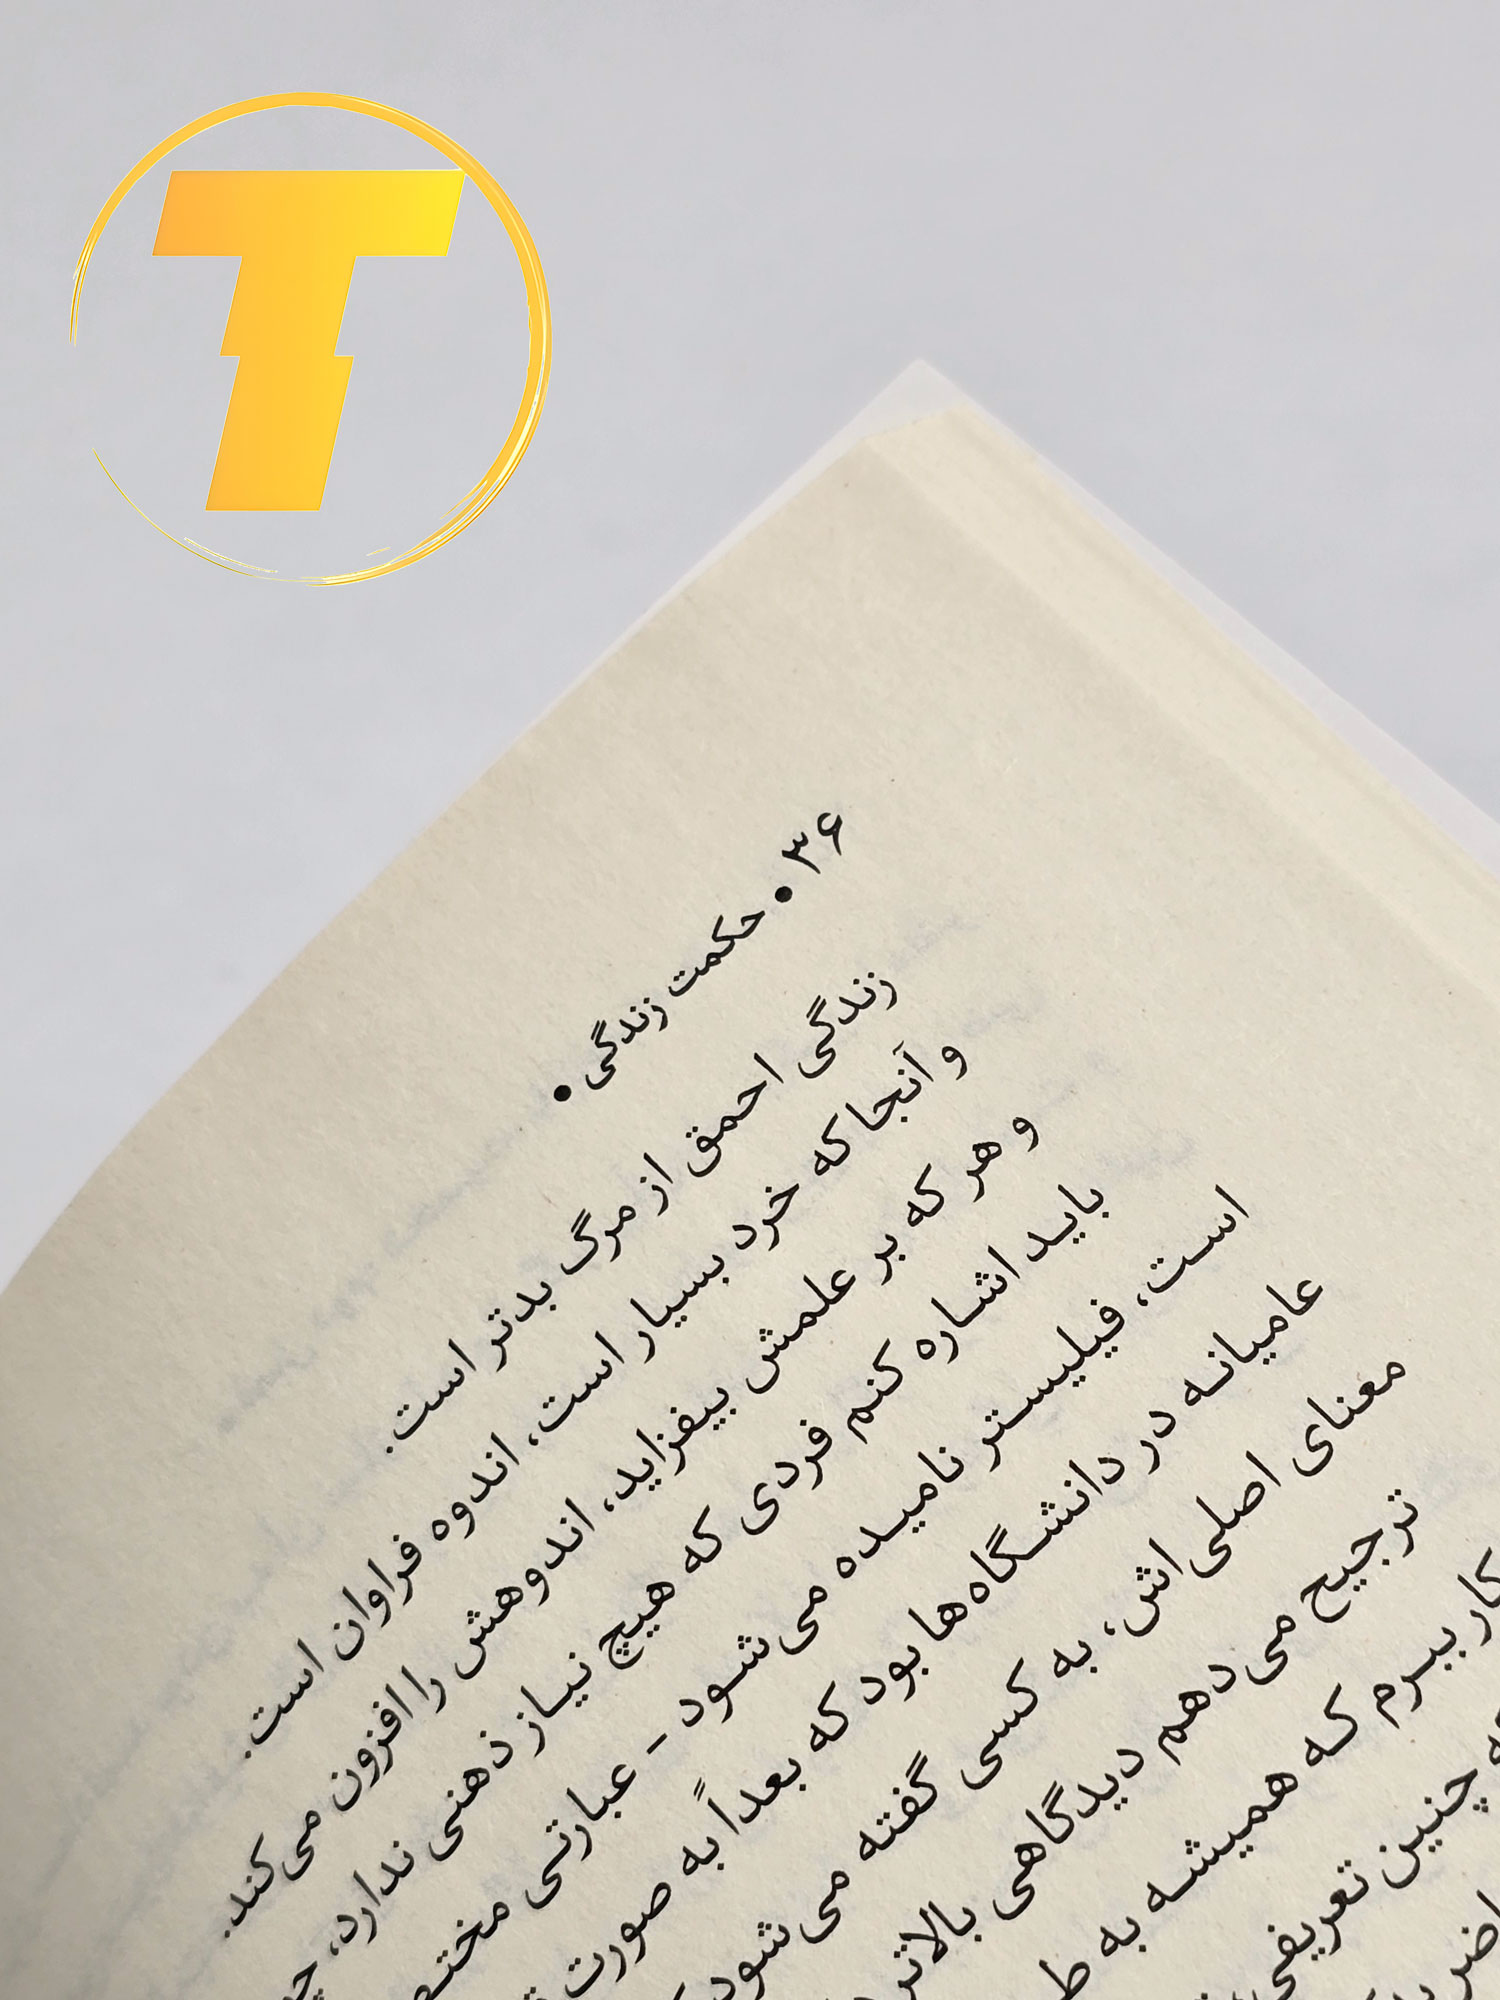 T
۳۶ • حکمت زندگی •
زندگی احمق از مرگ بدتر است.
و آنجا که خرد بسیار است، اندوه فراوان است.
و هر که بر علمش بیفزاید، اندوهش را افزون می‌کند.
باید اشاره کنم فردی که هیچ نیاز ذهنی ندارد،
است، فیلیستر نامیده می‌شود – عبارتی
عامیانه در دانشگاه‌ها بود که بعداً به صورت
معنای اصلی‌اش، به کسی گفته می‌شود
ترجیح می‌دهم دیدگاهی بالاتر
کار ببرم که همیشه به
چنین تعریفی